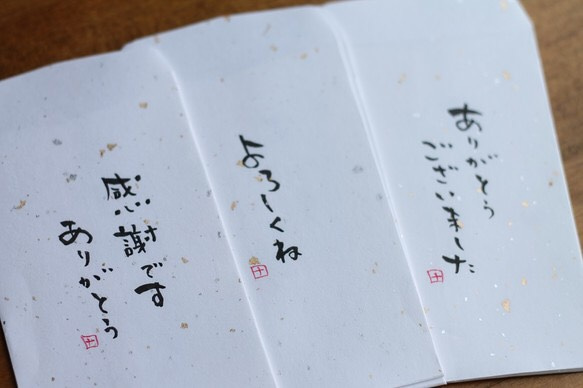 ありがとう
ございました
よろしくね
感謝です
ありがとう